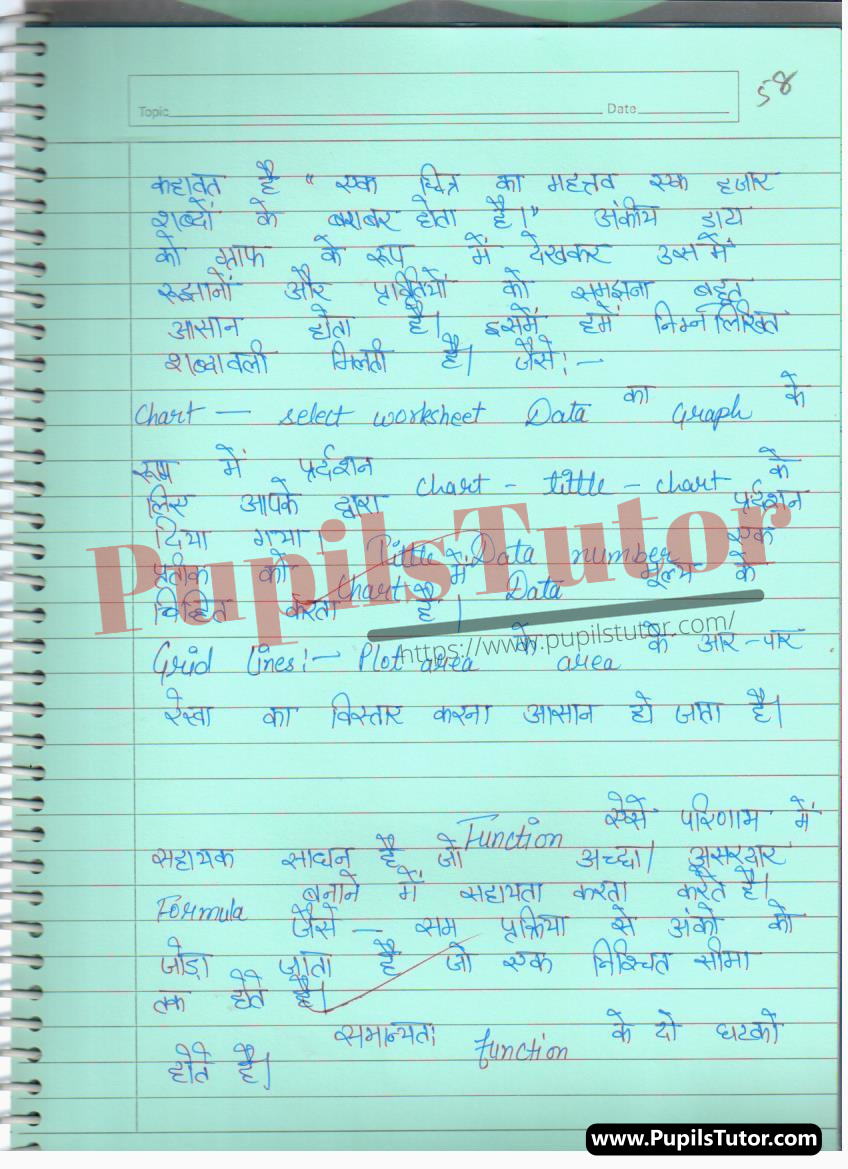 58
Topic Date
कहावत है " एक चित्र का महत्तव एक हजार
शब्दों के बराबर होता है।" अंकीय डाटा
को ग्राफ के रूप में देखकर उसमें
रूझानों और प्रवितियों को समझना बहुत
आसान होता है। इसमें हमें निम्नलिखित
शब्दावली मिलती है। जैसे:-
Chart — select worksheet Data का Graph के
रूप में प्रर्दशन
लिए आपके द्वारा chart - tittle - chart के प्रर्दशन
दिया गया। Tittle Data number एक
प्रतीक को chart में Data मूल्य के
चिन्हित करता है।
Grid lines:- Plot area के area के आर-पार
रेखा का विस्तार करना आसान हो जाता है।
Function ऐसे परिणाम में
सहायक साधन है जो अच्छा। असरदार
Formula बनाने में सहायता करता करते है।
जैसे — सम प्रक्रिया से अंको को
जोड़ा जाता है जो एक निश्चित सीमा
तक होते है।
समान्यतः function के दो घटको
होते है।
PupilsTutor
https://www.pupilstutor.com/
www.PupilsTutor.com